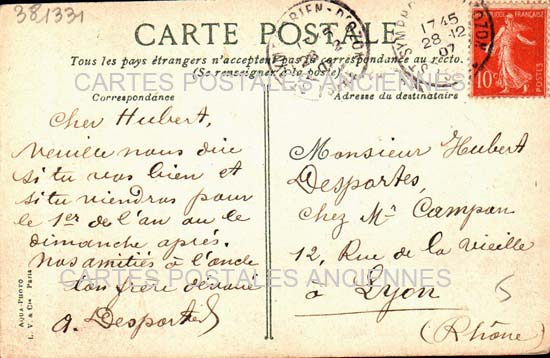 381331
CARTE POSTALE
Tous les pays étrangers n'acceptent pas la correspondance au recto.
(Se renseigner à la poste)
CARTES POSTALES ANCIENNES
Correspondance
Cher Hubert,
Veuille nous dire
si tu vas bien et
si tu viendras pour
le 1er de l'an ou le
dimanche après.
Nos amitiés à l'oncle
ton frère dévoué
A. Desportes
AQUA-PHOTO
L. V. & Cie Paris
SYMPHORIEN-D'OZON
17 45
28 - 12
07
10c
Adresse du destinataire
Monsieur Hubert
Desportes,
Chez Mr Campan
12, Rue de la Vieille
à Lyon
(Rhône)
5
CARTES POSTALES ANCIENNES